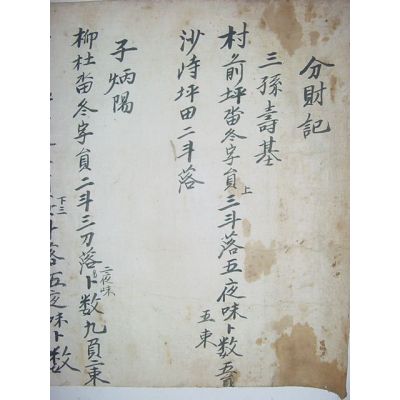 分財記
三孫壽基
村前坪畓冬字員上三斗落五夜味卜数五負
五束
沙洔坪田二斗落
子炳陽
柳杜畓冬字員二斗三刀落二夜味卜数九負二束
下三斗落五夜味卜数